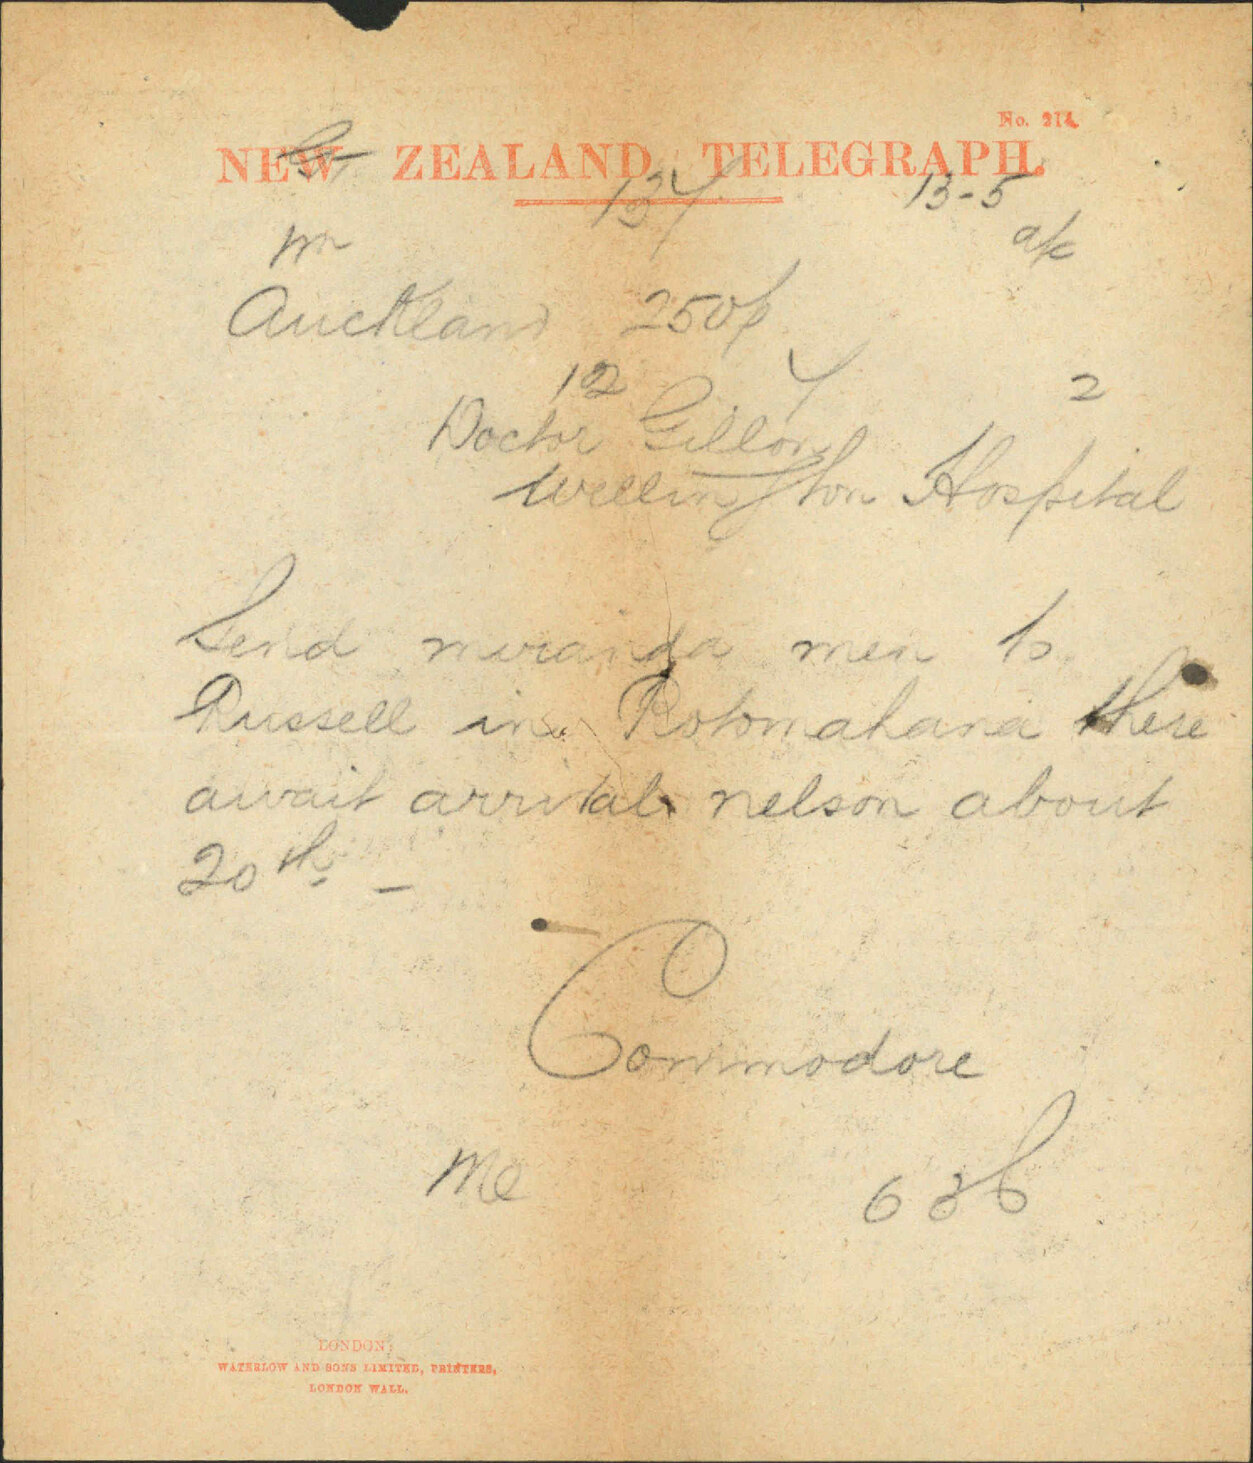 No. 214.
NEW ZEALAND TELEGRAPH.
137 13-5
a/c
Auckland 250p
12 2
Doctor Gillon
Wellington Hospital
Send miranda men to
Russell in Rotomahana there
await arrival nelson about
20th. —
Commodore
Me 6
LONDON:
WATERLOW AND SONS LIMITED, PRINTERS,
LONDON WALL.